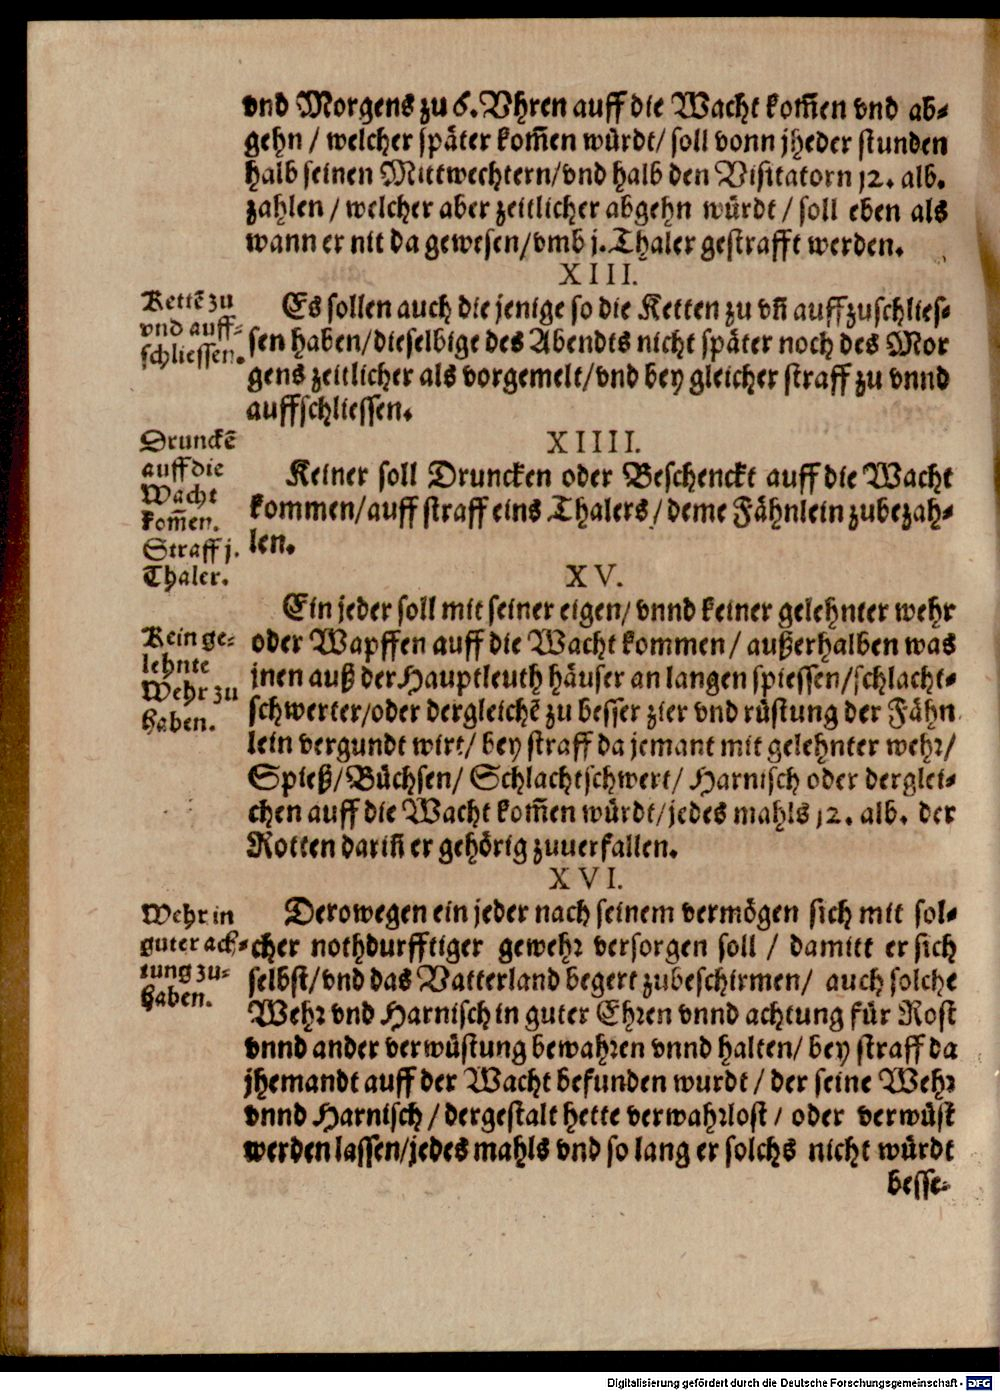 vnd Morgens zu 6. Vhren auff die Wacht kom̃en vnd ab-
gehn / welcher später kom̃en würdt / soll vonn jheder stunden
halb seinen Mittwechtern / vnd halb den Visitatorn 12. alb.
zahlen / welcher aber zeitlicher abgehn würdt / soll eben als
wann er nit da gewesen / vmb j. Thaler gestrafft werden.
XIII.
Kettẽ zu
vnd auff-
schliessen.
Es sollen auch die jenige so die Ketten zu vñ auffzuschlies-
sen haben / dieselbige des Abendts nicht später noch des Mor
gens zeitlicher als vorgemelt / vnd bey gleicher straff zu vnnd
auffschliessen.
XIIII.
Drunckẽ
auff die
Wacht
kom̃en.
Straff j.
Thaler.
Keiner soll Druncken oder Beschenckt auff die Wacht
kommen / auff straff eins Thalers / deme Fähnlein zubezah-
len.
XV.
Kein ge-
lehnte
Wehr zu
haben.
Ein jeder soll mit seiner eigen / vnnd keiner gelehnter wehr
oder Wapffen auff die Wacht kommen / außerhalben was
jnen auß der Hauptleuth häuser an langen spiessen / schlacht-
schwerter / oder dergleichẽ zu besser zier vnd rüstung der Fähn
lein vergundt wirt / bey straff da jemant mit gelehnter wehr /
Spieß / Büchsen / Schlachtschwert / Harnisch oder derglei-
chen auff die Wacht kom̃en würdt / jedes mahls 12. alb. der
Rotten dariñ er gehörig zuuerfallen.
XVI.
Wehr in
guter ach-
tung zu-
haben.
Derowegen ein jeder nach seinem vermögen sich mit sol-
cher nothdurfftiger gewehr versorgen soll / damitt er sich
selbst / vnd das Vatterland begert zubeschirmen / auch solche
Wehr vnd Harnisch in guter Ehren vnnd achtung für Rost
vnnd ander verwüstung bewahren vnnd halten / bey straff da
jhemandt auff der Wacht befunden wurdt / der seine Wehr
vnnd Harnisch / dergestalt hette verwahrlost / oder verwüst
werden lassen / jedes mahls vnd so lang er solchs nicht würdt
besse-
Digitalisierung gefördert durch die Deutsche Forschungsgemeinschaft - DFG